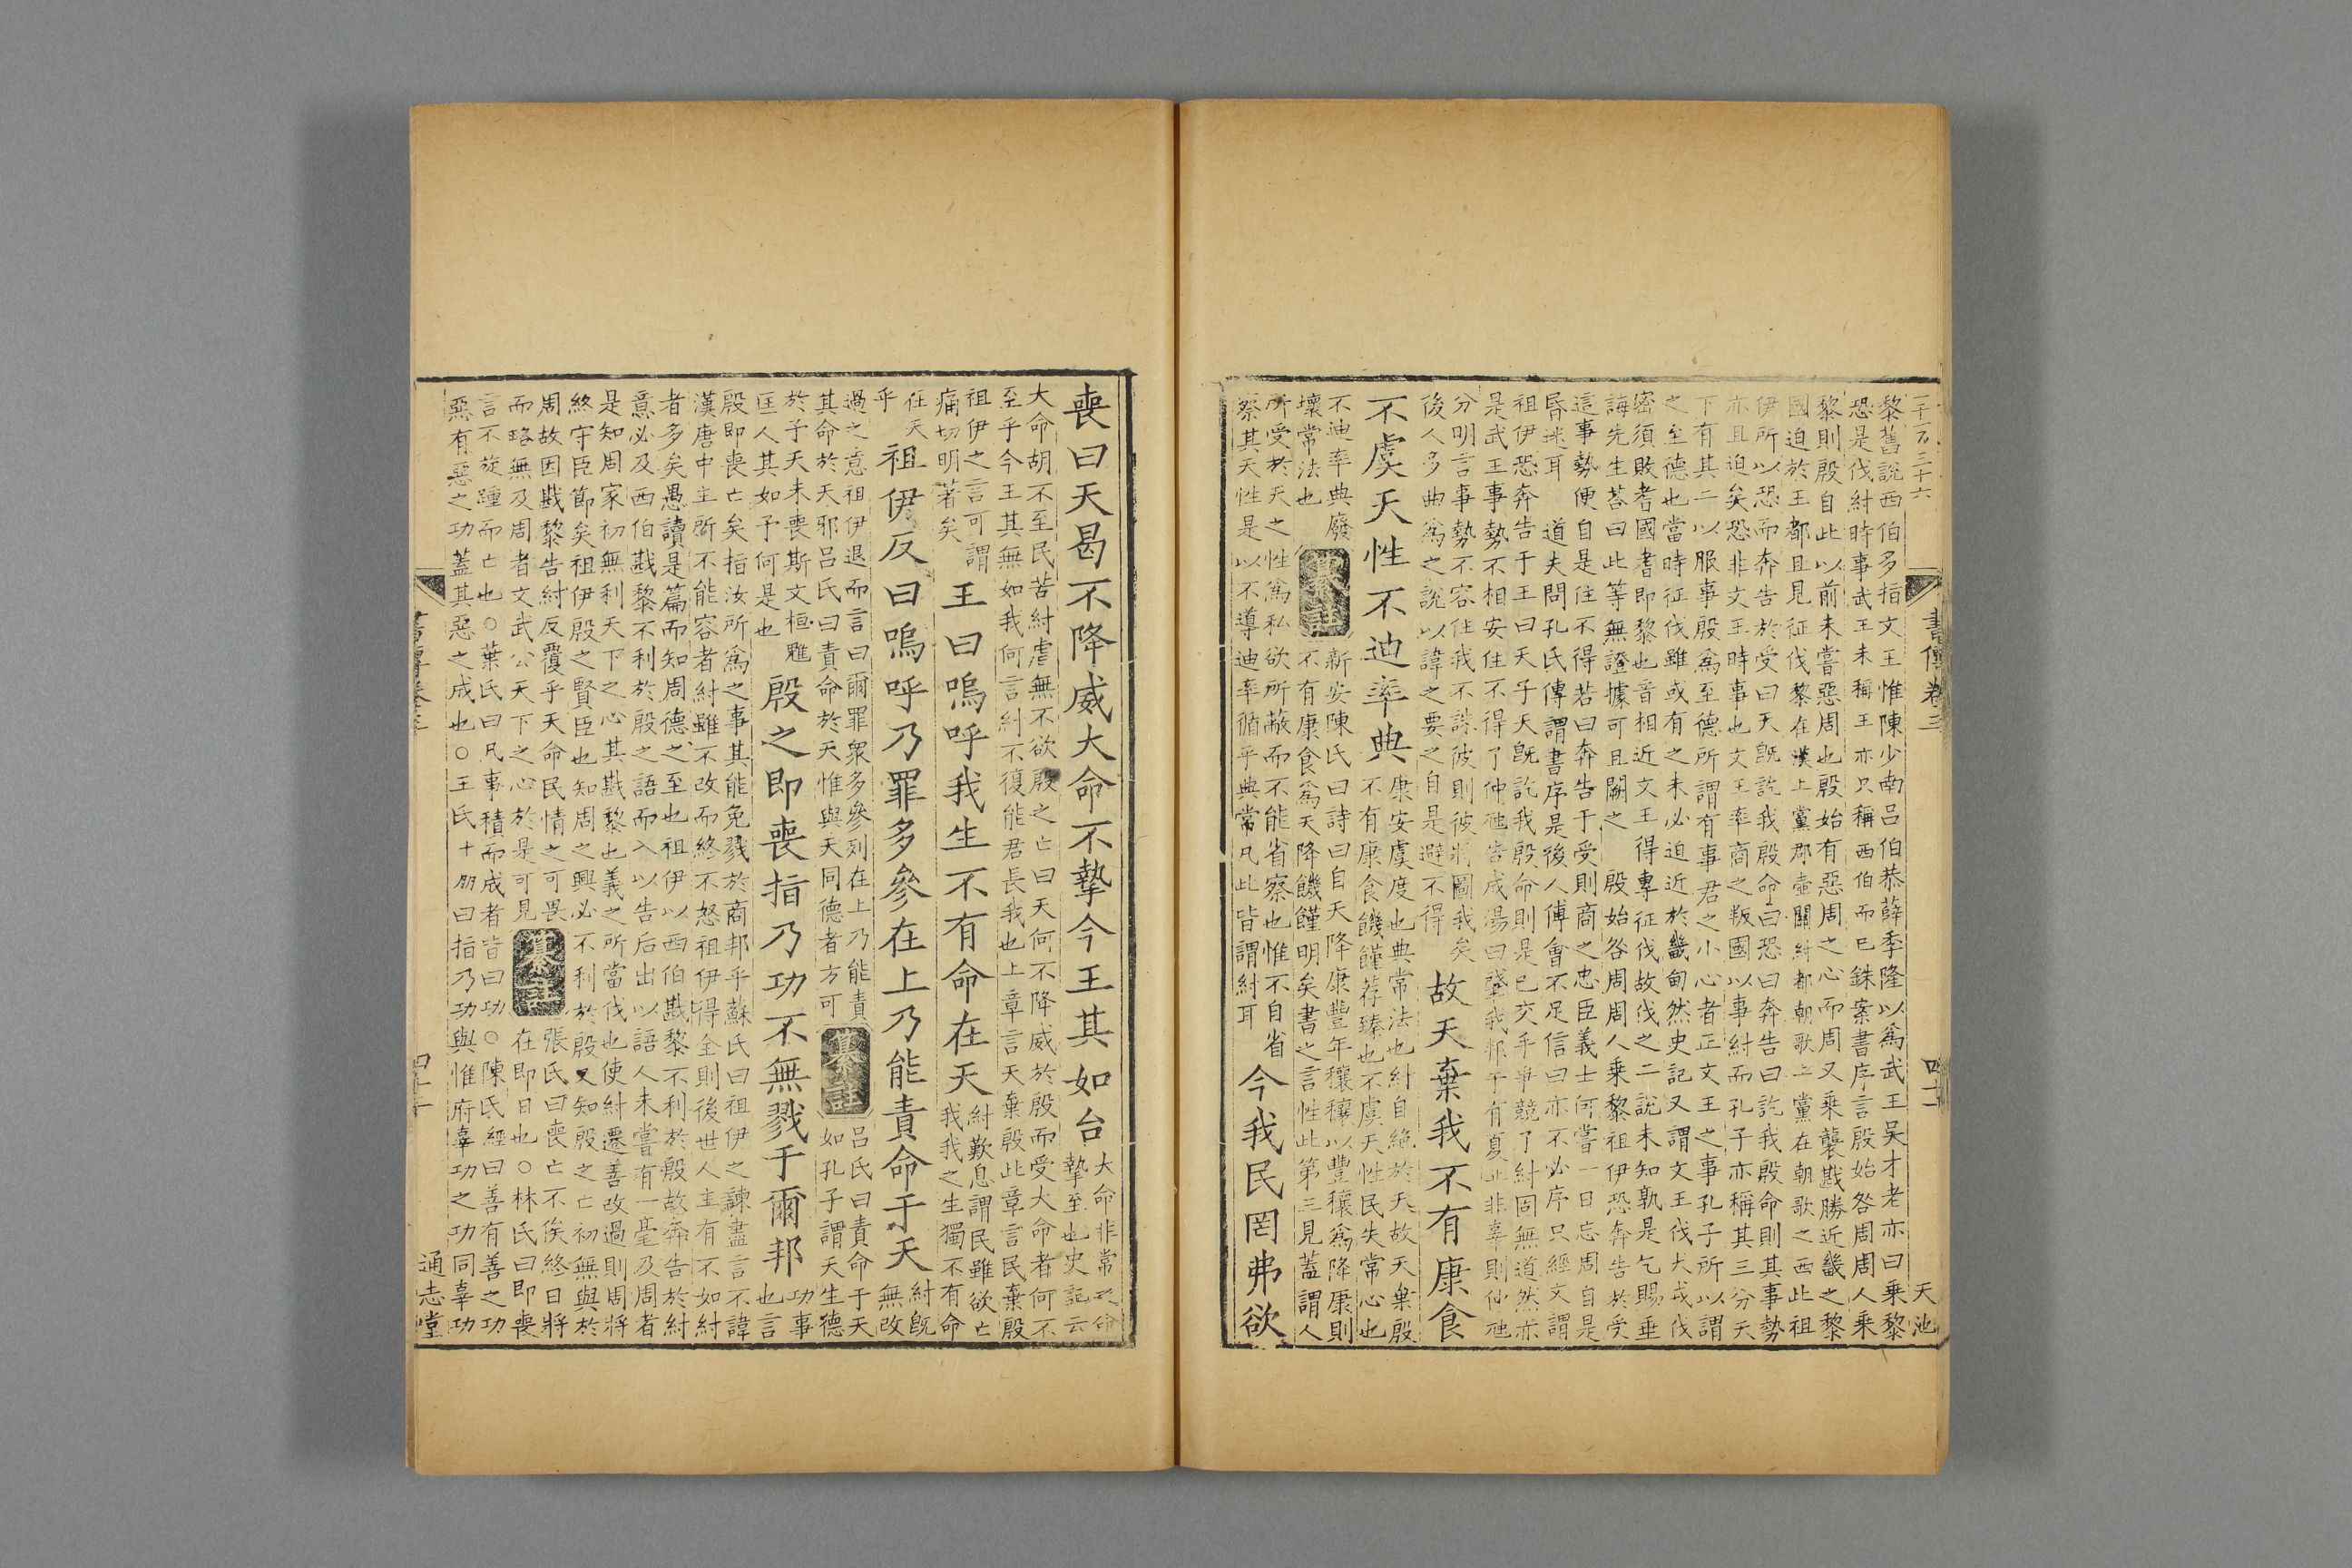 二十六
書傳卷三
天池
黎舊說西伯多指文王惟陳少南呂伯恭薛季隆以為武王吳才老亦曰乗黎
恐是伐紂時事武王未稱王亦只稱西伯而已銖案書序言殷始咎周周人乗
黎則殷自此以前未嘗惡周也殷始有惡周之心而周又乗襲戡勝近畿之黎
國迫於王都且見征伐黎在漢上黨郡壺關紂都朝歌上黨在朝歌之西此祖
伊所以恐而奔告於受曰天旣訖我殷命曰恐曰奔告曰訖我殷命則其事勢
亦且迫矣恐非文王時事也文王率商之叛國以事紂而孔子亦稱其三分天
下有其二以服事殷為至德所謂有事君之小心者正文王之事孔子所以謂
之至德也當時征伐雖或有之未必迫近於畿甸然史記又謂文王伐犬戎伐
密須敗耆國耆即黎也音相近文王得專征伐故伐之二說未知孰是乞賜垂
誨先生荅曰此等無證據可且闕之　殷始咎周周人乗黎祖伊恐奔告於受
這事勢便自是住不得若曰奔告于受則商之忠臣義士何嘗一日忘周自是
昏迷耳　道夫問孔氏傳謂書序是後人傅會不足信曰亦不必序只經文謂
祖伊恐奔告于王曰天子天旣訖我殷命則是已交乎爭競了紂固無道然亦
是武王事勢不相安住不得了仲虺告成湯曰肇我邦于有夏止非辜則仲虺
分明言事勢不容住我不誅彼則彼將圖我矣
後人多曲為之說以諱之要之自是避不得
故天棄我不有康食
不虞天性不迪率典
康安虞度也典常法也紂自絶於天故天棄殷
不有康食饑饉荐臻也不虞天性民失常心也
不迪率典廢
壞常法也
纂註
新安陳氏曰詩曰自天降康豐年穰穰以豐穰為降康則
不有康食為天降饑饉明矣書之言性此第三見蓋謂人
所受於天之性為私欲所蔽而不能省察也惟不自省
察其天性是以不導迪率循乎典常凡此皆謂紂耳
今我民罔弗欲
喪曰天曷不降威大命不摯今王其如台
大命非常之命
摯至也史記云
大命胡不至民苦紂虐無不欲殷之亡曰天何不降威於殷而受大命者何不
至乎今王其無如我何言紂不復能君長我也上章言天棄殷此章言民棄殷
祖伊之言可謂
痛切明著矣
王曰嗚呼我生不有命在天
紂歎息謂民雖欲亡
我我之生獨不有命
在天
乎
祖伊反曰嗚呼乃罪多參在上乃能責命于天
紂旣
無改
過之意祖伊退而言曰爾罪衆多參列在上乃能責
其命於天邪呂氏曰責命於天惟與天同德者方可
纂註
呂氏曰責命于天
如孔子謂天生德
於予天未喪斯文桓魋
匡人其如予何是也
殷之即喪指乃功不無戮于爾邦
功事
也言
殷即喪亡矣指汝所為之事其能免戮於商邦乎蘇氏曰祖伊之諫盡言不諱
漢唐中主所不能容者紂雖不改而終不怒祖伊得全則後世人主有不如紂
者多矣愚讀是篇而知周德之至也祖伊以西伯戡黎不利於殷故奔告於紂
意必及西伯戡黎不利於殷之語而入以告后出以語人未嘗有一毫及周者
是知周家初無利天下之心其戡黎也義之所當伐也使紂遷善改過則周將
終守臣節矣祖伊殷之賢臣也知周之興必不利於殷又知殷之亡初無與於
周故因戡黎告紂反覆乎天命民情之可畏
而略無及周者文武公天下之心於是可見
纂註
張氏曰喪亡不俟終日將
在即日也○林氏曰即喪
言不旋踵而亡也○葉氏曰凡事積而成者皆曰功○陳氏經曰善有善之功
惡有惡之功蓋其惡之成也○王氏十朋曰指乃功與惟府辜功之功同辜功
書傳卷三
通志堂